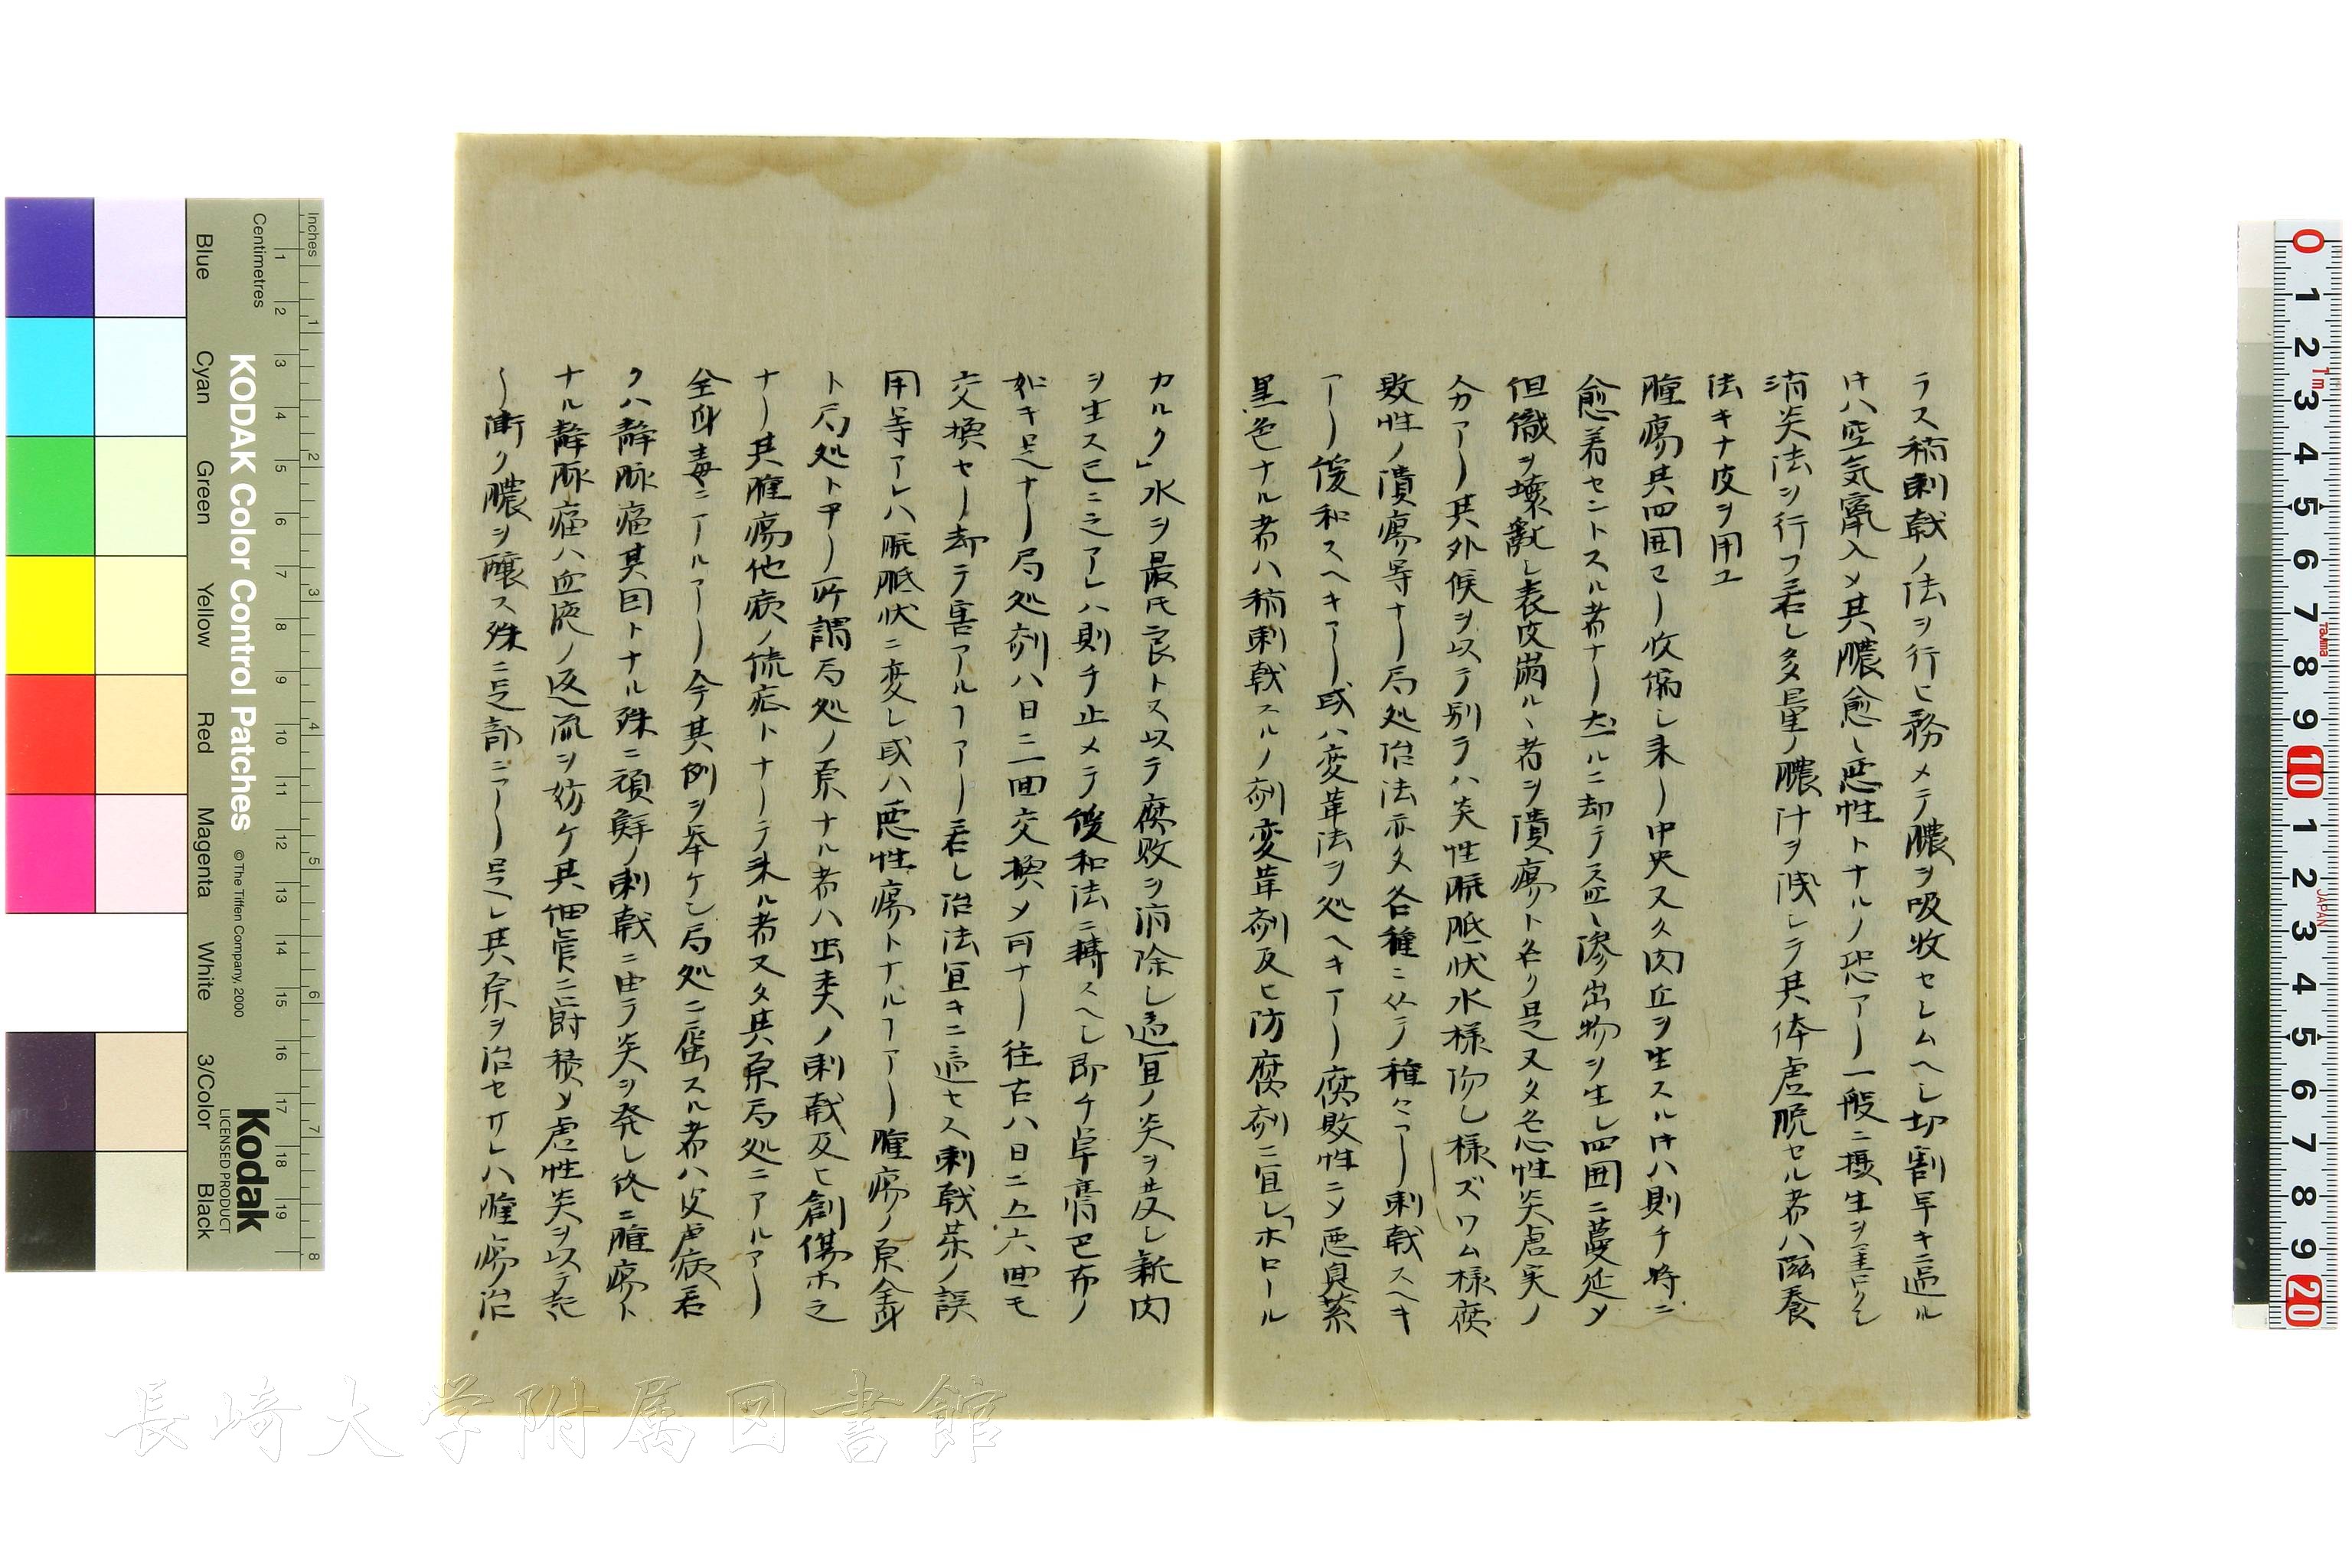 ラス稍刺戟ノ法ヲ行ヒ務メテ膿ヲ吸收セレムヘし切割早キニ過ル
𪜈ハ空気竄入メ其膿愈〻悪性トナルノ恐アリ一般ニ摂生ヲ主トし
消炎法ヲ行フ若し多量ノ膿汁ヲ洩シテ其体虚脱セル者ハ滋養
法キナ皮ヲ用ユ
腫瘍其四囲ヨリ收縮し来リ中央又久肉丘ヲ生スル𪜈ハ則チ将ニ
愈着セントスル者ナリ然ルニ却テ益〻滲出物ヲ生し四囲ニ蔓延メ
但織ヲ壊敗し表皮滿ル丶者ヲ潰瘍ト名ク是又タ急性炎虚実ノ
分アリ其外候ヲ以テ別テハ炎性脈胝状水様flし様ズワム様腐
敗性ノ潰瘍等ナリ局処治法亦タ各種ニ従テ種々アリ刺戟スヘキ
アリ緩和スヘキアリ或ハ変革法ヲ処ヘキアリ腐敗性ニメ悪臭紫
黒色ナル者ハ稍刺戟スルノ剤変革剤及ヒ防腐剤ニ宜し「ホロール
カルク」水ヲ最モ良トス以テ腐敗ヲ消除し適宜ノ炎ヲ発し新肉
ヲ生ス已ニ之アレハ則チ止メテ緩和法ニ轉スヘし即チ阜膏巴布ノ
如キ是ナリ局処剤ハ日ニ二回交換メ可ナリ往古ハ日ニ五六回モ
交換セリ却テ害アルヿアリ若し治法宜キニ適セス刺戟薬ノ誤
用等アレハ脈胝状ニ変し或ハ悪性瘍トナルヿアリ腫瘍ノ原全身
ト局処トヨリ所謂局処ノ原ナル者ハ虫类ノ刺戟及ヒ創傷ホ之
ナリ其腫瘍他病ノ流症トナリテ来ル者又タ其原局処ニアルアリ
全身毒ニアルアリ今其例ヲ挙ケン局処ニ属スル者ハ皮膚病若
クハ静脈瘤其因トナル殊ニ頑癬ノ刺戟ニ由テ炎ヲ発し終ニ腫瘍ト
ナル静脈瘤ハ血液ノ返流ヲ妨ケ其細管ニ欝積メ虚性炎ヲ以テ起
リ漸ク膿ヲ醸ス殊ニ是部ニアリ是し其原ヲ治セサレハ腫瘍ノ治
Inches
Centimetres
KODAK Color Control Patches
©The Tiffen Company, 2000
Kodak
LICENSED PRODUCT
Blue
Cyan
Green
Yellow
Red
Magenta
White
3/Color
Black
長崎大学附属図書館